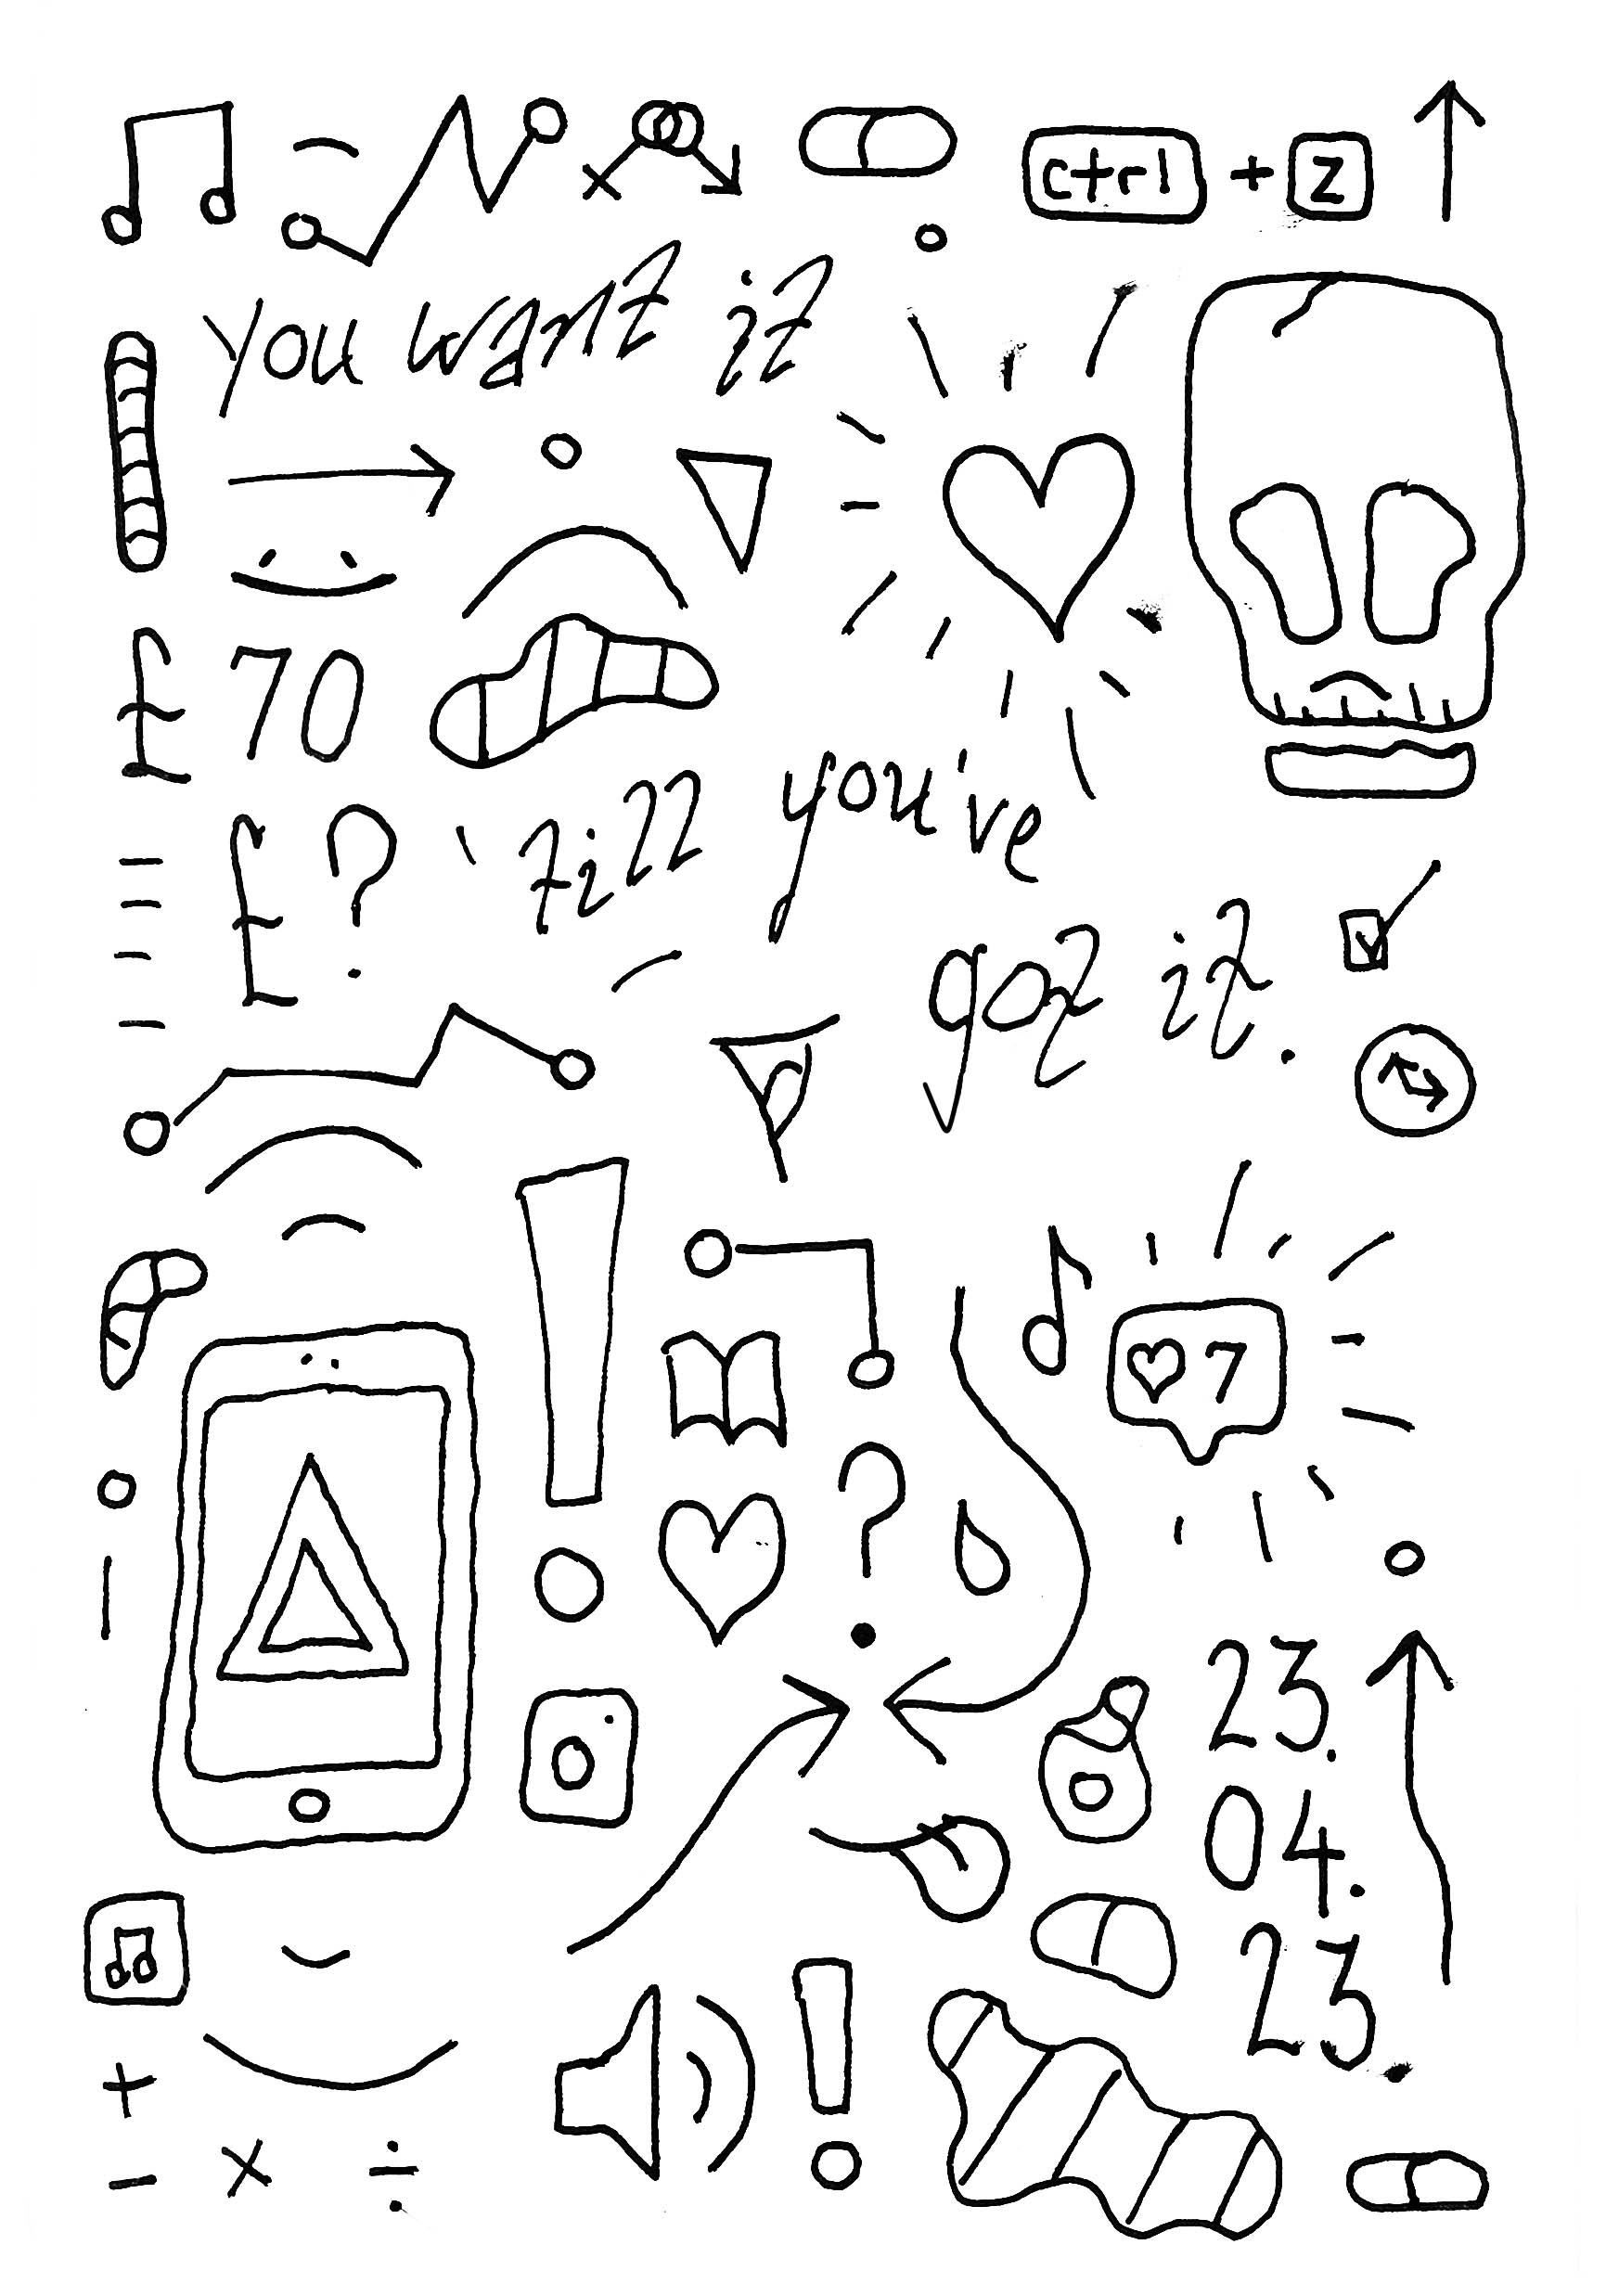 ctrl + z
you want it
£ 70
£ ?
'till you've
got it.
♡ 7
?
23.
04.
23.
+
- × ÷